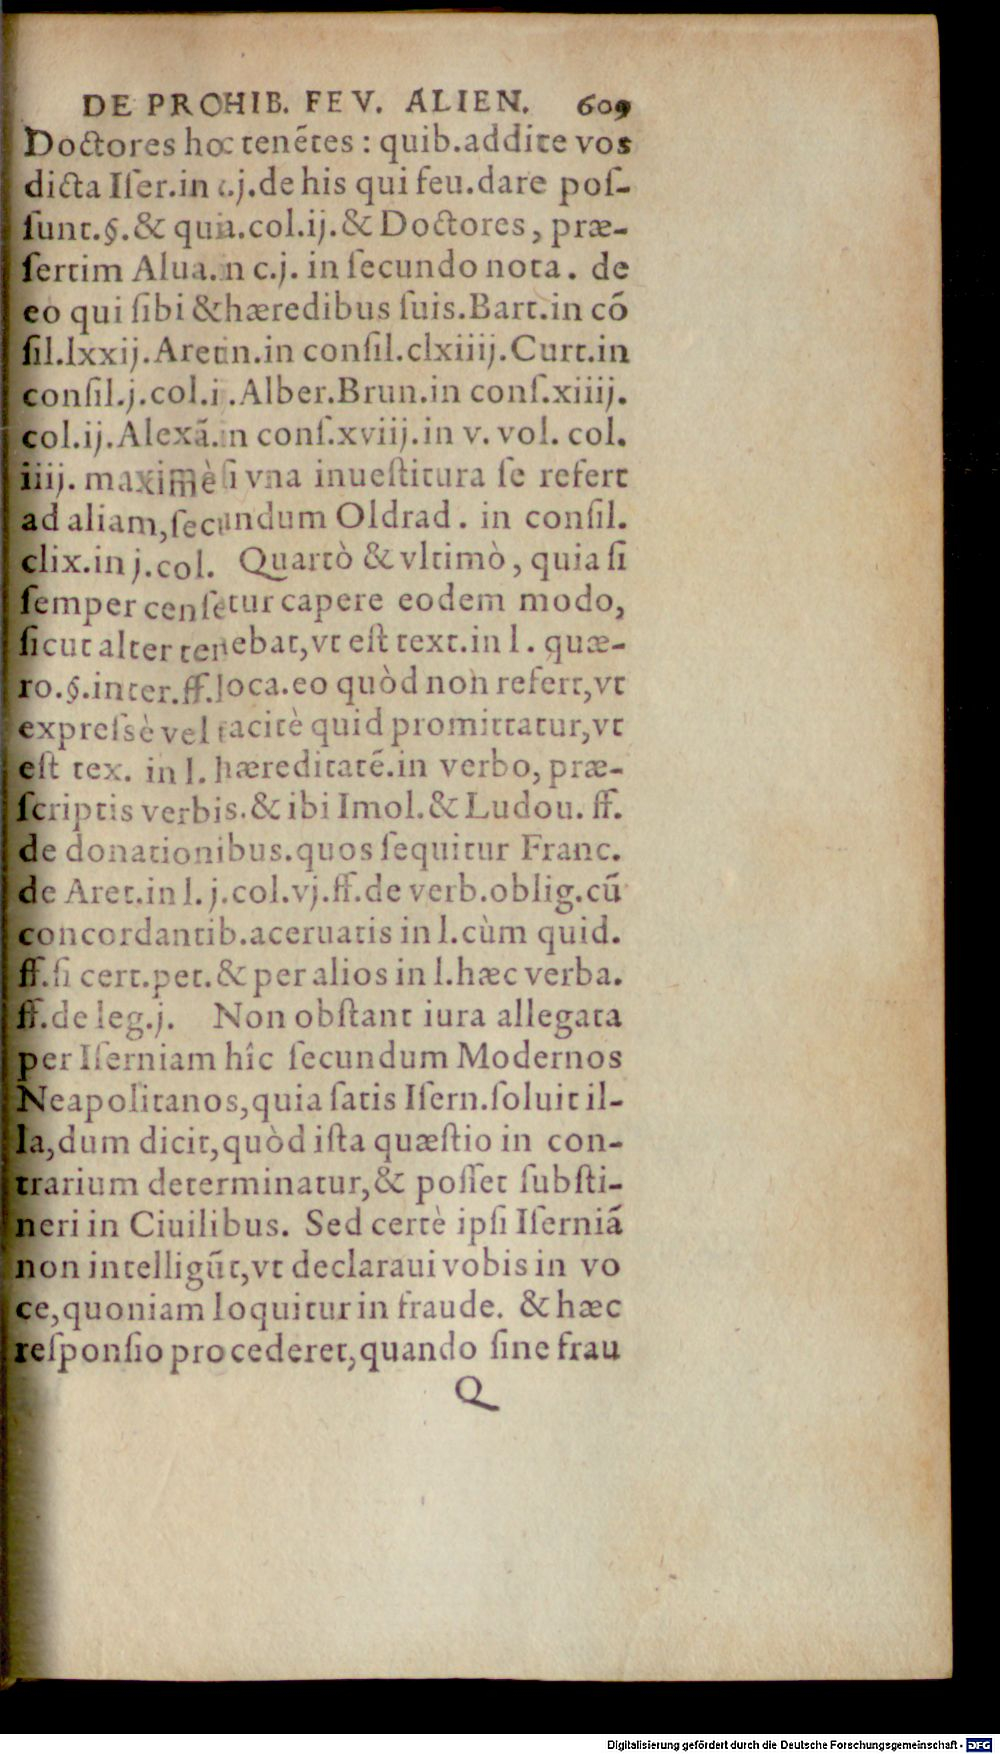 DE PROHIB. FEV. ALIEN. 609
Doctores hoc tenẽtes : quib.addite vos
dicta Iſer.in c.j.de his qui feu.dare poſ-
ſunt.§.& quia.col.ij.& Doctores, præ-
ſertim Alua.in c.j. in ſecundo nota. de
eo qui ſibi &hæredibus ſuis.Bart.in cō
ſil.lxxij.Aretin.in conſil.clxiiij.Curt.in
conſil.j.col.i .Alber.Brun.in conſ.xiiij.
col.ij.Alexã.in conſ.xviij.in v. vol. col.
iiij. maximè ſi vna inueſtitura ſe refert
ad aliam,ſecundum Oldrad. in conſil.
clix.in j.col. Quartò & vltimò, quia ſi
ſemper cenſetur capere eodem modo,
ſicut alter tenebat,vt eſt text.in l. quæ-
ro.§.inter.ff.loca.eo quòd non refert,vt
expreſsè vel tacitè quid promittatur,vt
eſt tex. in l. hæreditatẽ.in verbo, præ-
ſcriptis verbis.& ibi Imol.& Ludou. ff.
de donationibus.quos ſequitur Franc.
de Aret.in l. j.col.vj.ff.de verb.oblig.cũ
concordantib.aceruatis in l.cùm quid.
ff.ſi cert.pet.& per alios in l.hæc verba.
ff.de leg.j. Non obſtant iura allegata
per Iſerniam hîc ſecundum Modernos
Neapolitanos,quia ſatis Iſern.ſoluit il-
la,dum dicit,quòd iſta quæſtio in con-
trarium determinatur,& poſſet ſubſti-
neri in Ciuilibus. Sed certè ipſi Iſerniã
non intelligũt,vt declaraui vobis in vo
ce,quoniam loquitur in fraude. & hæc
reſponſio procederet,quando ſine frau
Q
Digitalisierung gefördert durch die Deutsche Forschungsgemeinschaft - DFG